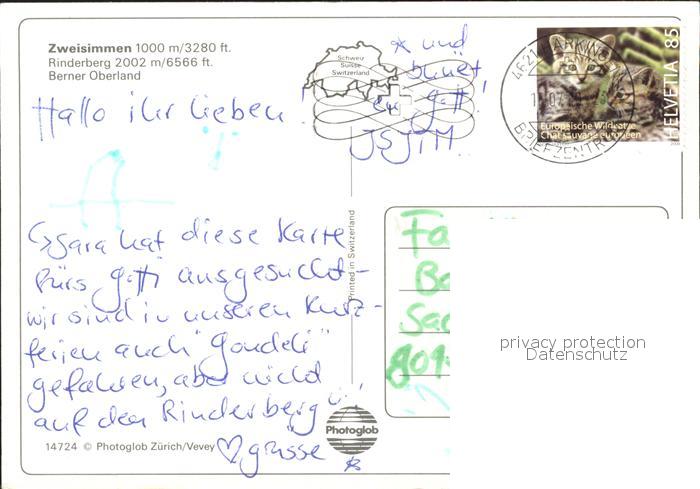 Zweisimmen 1000 m/3280 ft.
Rinderberg 2002 m/6566 ft.
Berner Oberland
Hallo ihr lieben !
Sara hat diese Karte
fürs gotti ausgesucht -
wir sind in unseren Kurz-
ferien auch "Gondeli"
gefahren, aber nicht
auf den Rinderberg
grüsse
* und
gott !
Schweiz
Suisse
Switzerland
HELVETIA 85
Europäische Wildkatze
Chat sauvage européen
BRIEFZENTR
Printed in Switzerland
Fa
Be
Sa
privacy protection
Datenschutz
Photoglob
14724 © Photoglob Zürich/Vevey